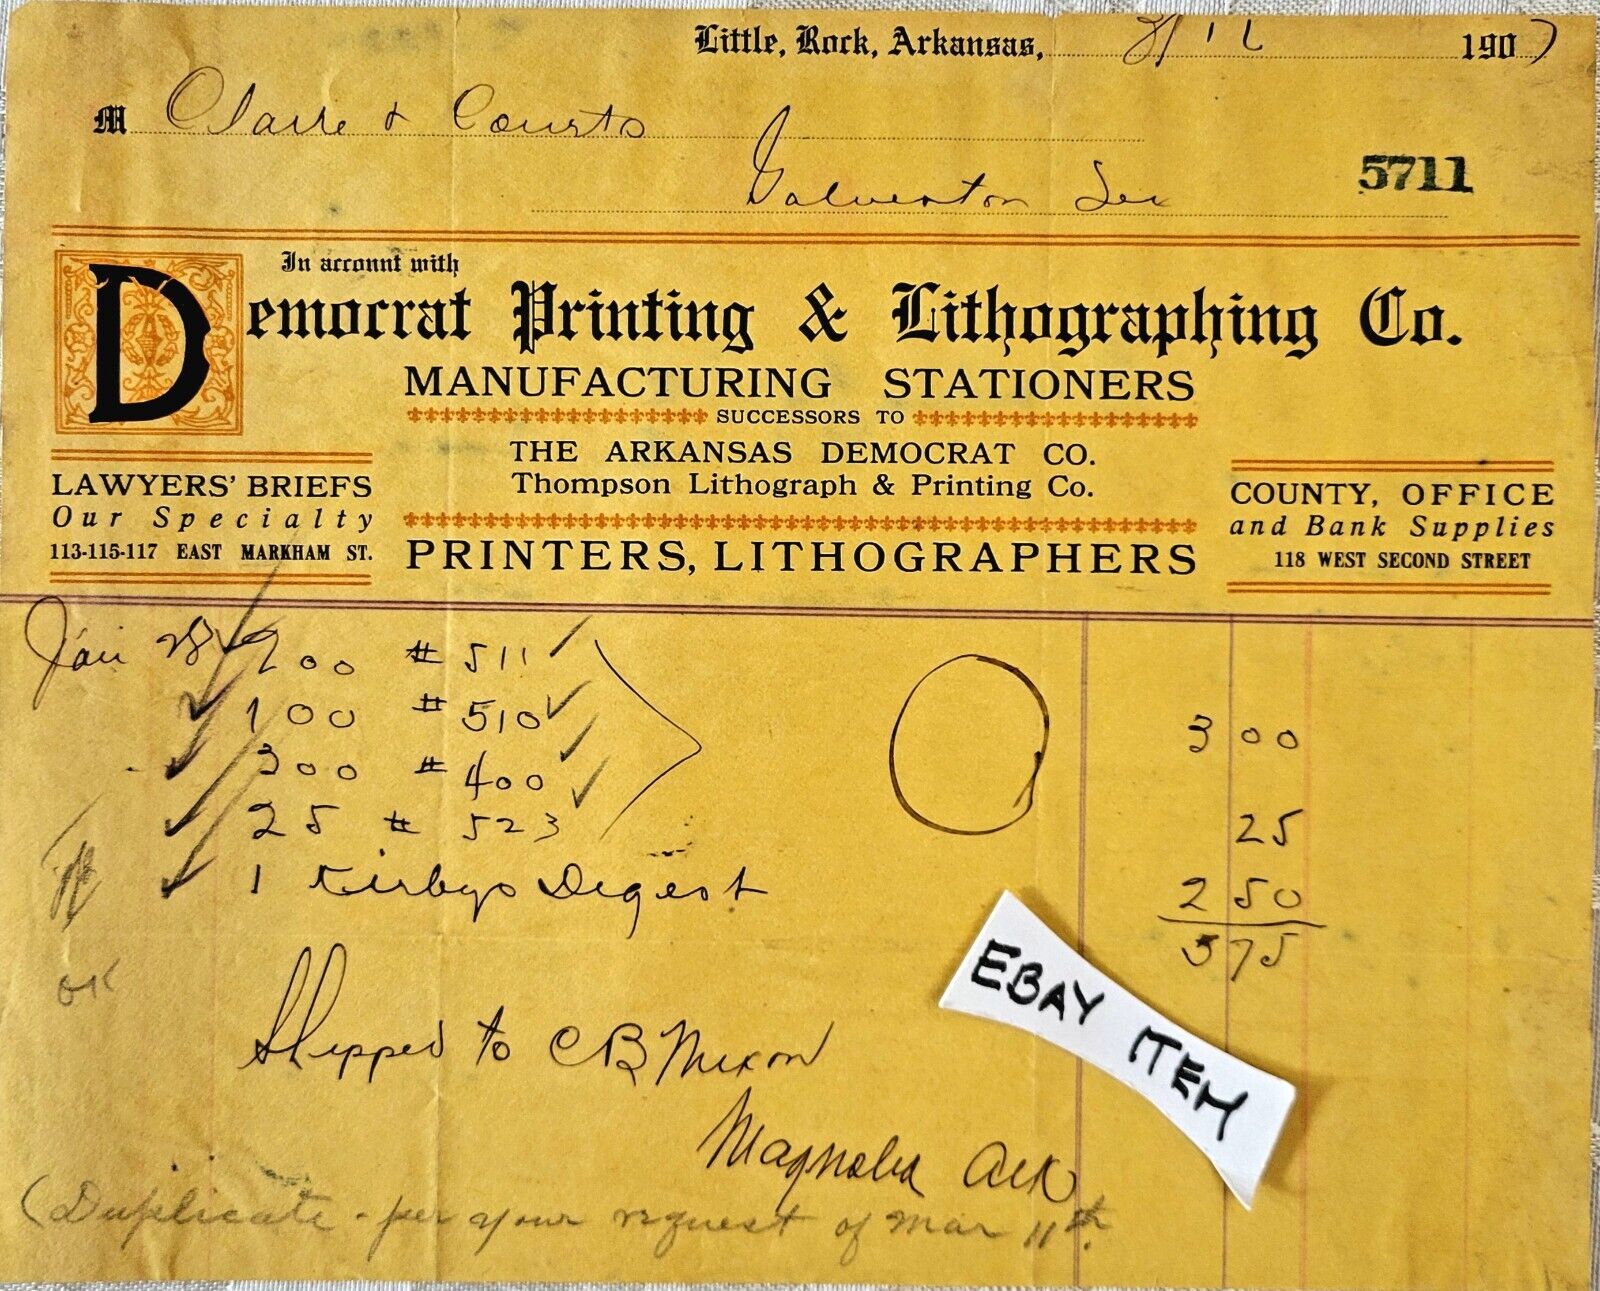 Little, Rock, Arkansas, 3/12 1907
M Clarke & Courts
Galveston Tex
5711
In account with
Democrat Printing & Lithographing Co.
MANUFACTURING STATIONERS
SUCCESSORS TO
THE ARKANSAS DEMOCRAT CO.
Thompson Lithograph & Printing Co.
PRINTERS, LITHOGRAPHERS
LAWYERS' BRIEFS
Our Specialty
113-115-117 EAST MARKHAM ST.
COUNTY, OFFICE
and Bank Supplies
118 WEST SECOND STREET
Jan 28 200 # 511
100 # 510
300 # 400
25 # 523
3 00
25
1 Kirbys Digest 2 50
5 75
OK
Shipped to C B Nixon
Magnolia Ark
(Duplicate - per your request of Mar 11th.
EBAY ITEM